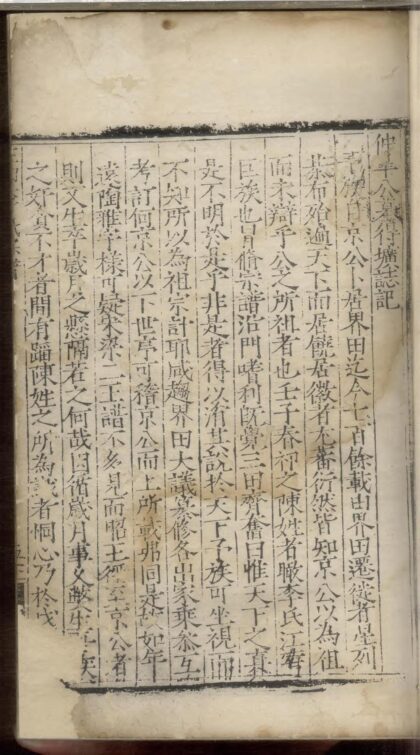 仲平公尋得壙誌記
予族自京公卜居界田迄今七百餘載由界田遷從者星列
棊布殆遍天下而居饒居徽者尤蕃衍然皆知京公以為祖
而未辯乎公之所祖者也壬子春祁之陳姓者瞰李氏江南
巨族也冒修宗譜沿門嗜利既算三田齊奮曰惟天下之真
是不明於天下非是者得以淆其說於天下予族可坐視而
不知所以為祖宗計耶咸趨界田大議纂修各出家乘參互
考訂何京公以下世享可稽京公而上所載弗同是如年
遠陶雅字樣可疑朱梁二王譜不多見而昭王至京公者
則又生卒歲月之懸隔若之何哉因循歲月事文
之奸貪不才者間有蹈陳姓之所為識者恫心乃於戊